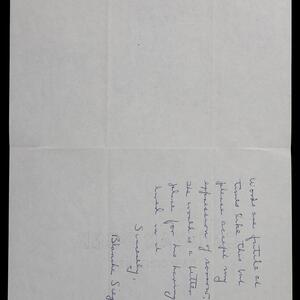 Words are futile at
times like this but
please accept my
expression of sorrow.
The world is a better
place for his having
lived in it
Sincerely,
Blanche